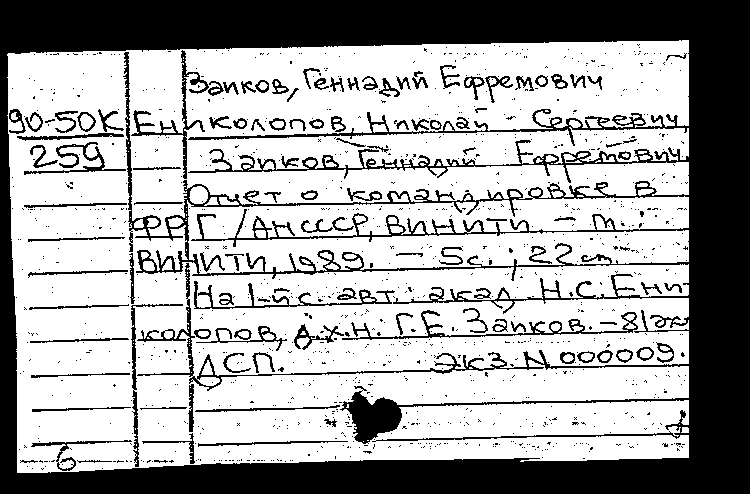 Заиков, Геннадий Ефремович
90-50К Ениколопов, Николай Сергеевич,
259 Заиков, Геннадий Ефремович.
Отчет о командировке в
ФРГ / АН СССР, ВИНИТИ. – М. :
ВИНИТИ, 1989. – 5с. ; 22 см.
На 1-й с. авт.: акад. Н.С. Ени-
колопов, д.х.н. Г.Е. Заиков. – 8 экз
ДСП. Экз. N 000009.
6